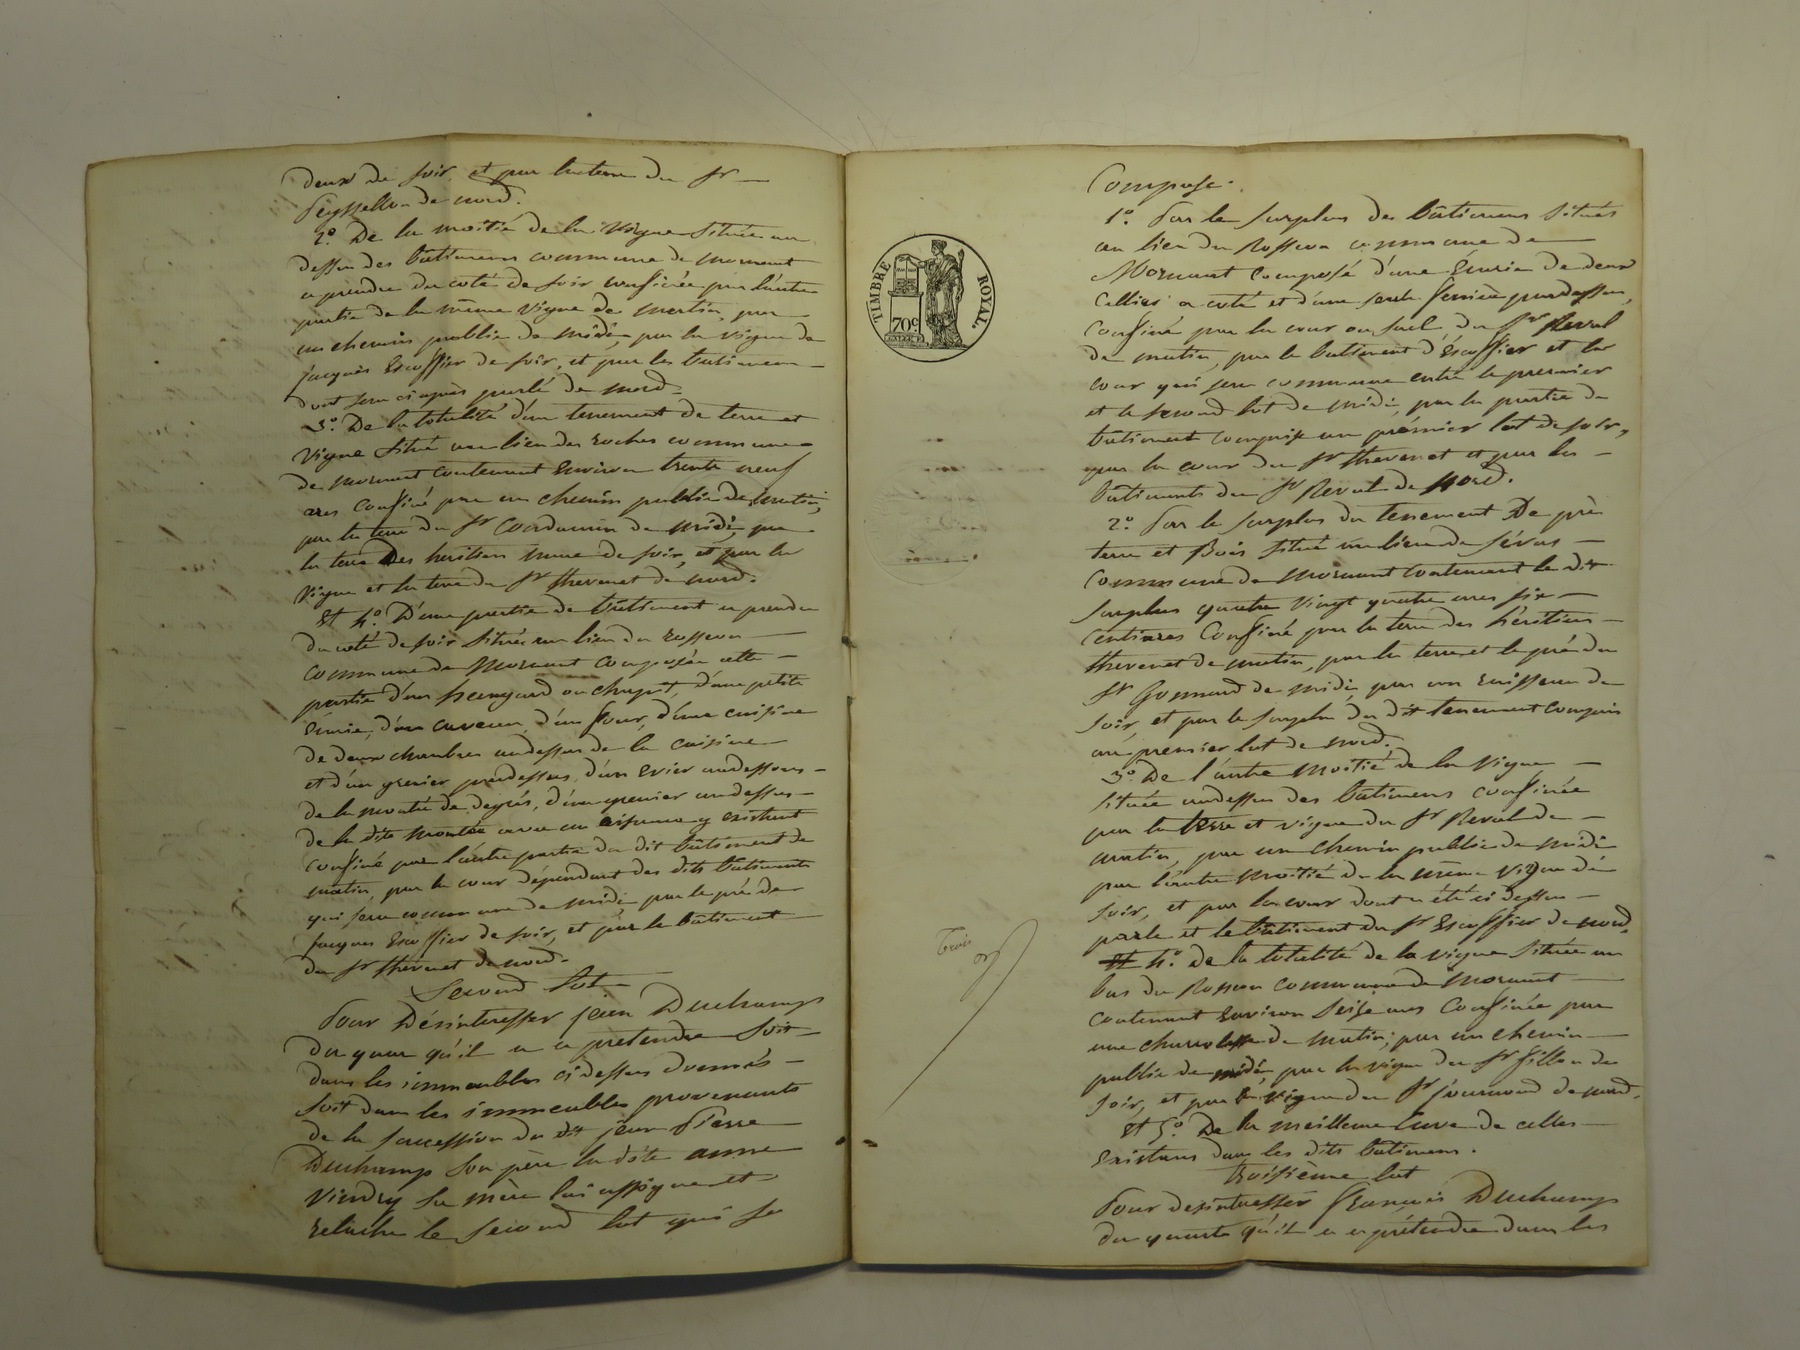 deux de soir, et par la terre du Sr
Peyssellon de nord.
2º. De la moitié de la Vigne Située au
dessus des bâtimens commune de mornant
a prendre du coté de soir confinée par l'autre
partie de la même vigne de matin, par
un chemin public de midi par la vigne de
jacques Escoffier de soir, et par les batimens
dont sera ci après parlé de nord.
3º. De la totalité d'un tenement de terre et
Vigne Situé au lieu des roches commune
de mornant contenant Environ trente neuf
ares Confiné par un chemin public de matin,
par la terre du Sr Condamin de midi, par
la terre Des heritiers de soir, et par la
Vigne et la terre du Sr thevenet de nord.
Et 4º. D'une partie de bâtiment a prendre
du coté de soir Située au lieu du rosseon
commune de Mornant Composée cette
partie d'un hangard ou chapit, d'une petite
Ecurie, d'un caveau, d'un four, d'une cuisine
de deux chambres audessus de la cuisine
et d'un grenier pardessus, d'un Evier audessous
de la montée de degrés, d'un grenier audessus
de la dite montée avec un y existant
Confiné par l'autre partie du dit bâtiment de
matin, par la cour dépendant des dits bâtiments
qui sera commune de midi, par le pré de
Jacques Escoffier de soir, et par le batiment
du Sr thevenet de nord.
Second Lot
Pour Désintéresser jean Duchamp
du quart qu'il a a prétendre Soit
dans les immeubles ci dessus donnés
Soit dans les immeubles provenants
de la succession du dt jean Pierre
Duchamp son père la dite anne
Vindry sa mère lui assigne et
relache le second lot qui se
TIMBRE ROYAL.
70c
Trois
Compose.
1º. Par le surplus des bâtimens situés
au lieu du Rosseon commune de
Mornant Composé d'une Ecurie de deux
Celliers a coté et d'une seule fenière pardessus,
Confiné par la cour ou suel du Sr Reval
de matin, par le batiment d'Escoffier et la
cour qui sera commune entre le premier
et le second lot de midi, par la partie de
bâtiment comprise au premier lot de soir,
par la cour du Sr thevenet et par les
bâtiments du Sr Reval de Nord.
2º. Par le surplus du tenement De prés
terre et Bois situé au lieu de
Commune de Mornant contenant le dit
Surplus quatre Vingt quatre ares six
Centiares Confiné par la terre des héritiers
thevenet de matin, par la terre et le pré du
Sr Gonnard de midi, par un ruisseau de
soir, et par le surplus du dit tenement compris
au premier lot de nord.
3º. De l'autre Moitié de la Vigne
Située audessus des bâtimens confinée
par la terre et vigne du Sr Reval de
matin, par un chemin public de midi
par l'autre Moitié de la même vigne de
soir, et par la cour dont a été ci dessus
parlé et le bâtiment du Sr Escoffier de nord,
Et 4º. De la totalité de la vigne située au
bas du Rosseon commune de Mornant
contenant Environ Seize ares Confinée par
une de matin, par un chemin
public de midi, par la vigne du Sr fillon de
soir, et par la vigne du Sr fournand de nord.
Et 5º. De la meilleure Cuve de celles
Existans dans les dits batimens.
Troisième lot
Pour désintéresser François Duchamp
du quart qu'il a a prétendre dans les